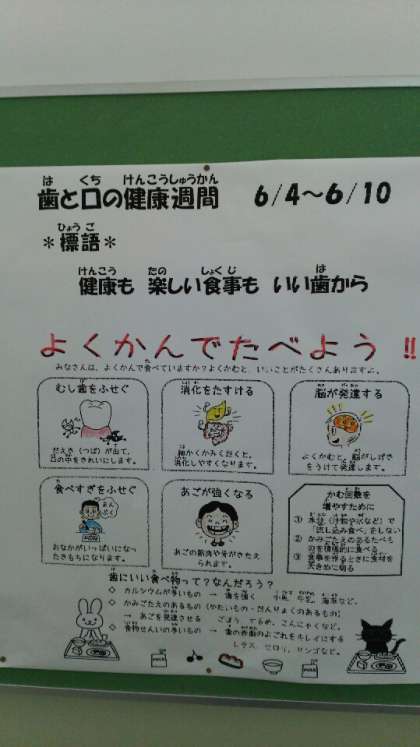 歯と口の健康週間 6/4～6/10
＊標語＊
健康も 楽しい食事も いい歯から
よくかんでたべよう!!
みなさんは、よくかんで食べていますか？よくかむと、いいことがたくさんありますよ。
むし歯をふせぐ
だえき(つば)が出て、
口の中をきれいにします。
消化をたすける
細かくかみくだくと、
消化しやすくなります。
脳が発達する
よくかむと、脳がしげき
をうけて発達します。
食べすぎをふせぐ
おなかがいっぱいになっ
たきもちになります。
あごが強くなる
あごの筋肉や骨がきたえ
られます。
かむ回数を
増やすために
① 水分(汁物や水など)で
「流し込み食べ」をしない
② かみごたえのあるたべも
のを積極的に食べる
③ 食事を作るときに食材を
大きめに切る
歯にいい食べ物って？なんだろう？
◇ カルシウムが多いもの → 歯を強く 小魚、牛乳、海藻など。
◇ かみごたえのあるもの(かたいもの・だんりょくのあるもの)
→ あごを発達させる ごぼう、するめ、こんにゃくなど。
◇ 食物せんいの多いもの → 歯の表面のよごれをキレイにする
レタス、セロリ、リンゴなど。